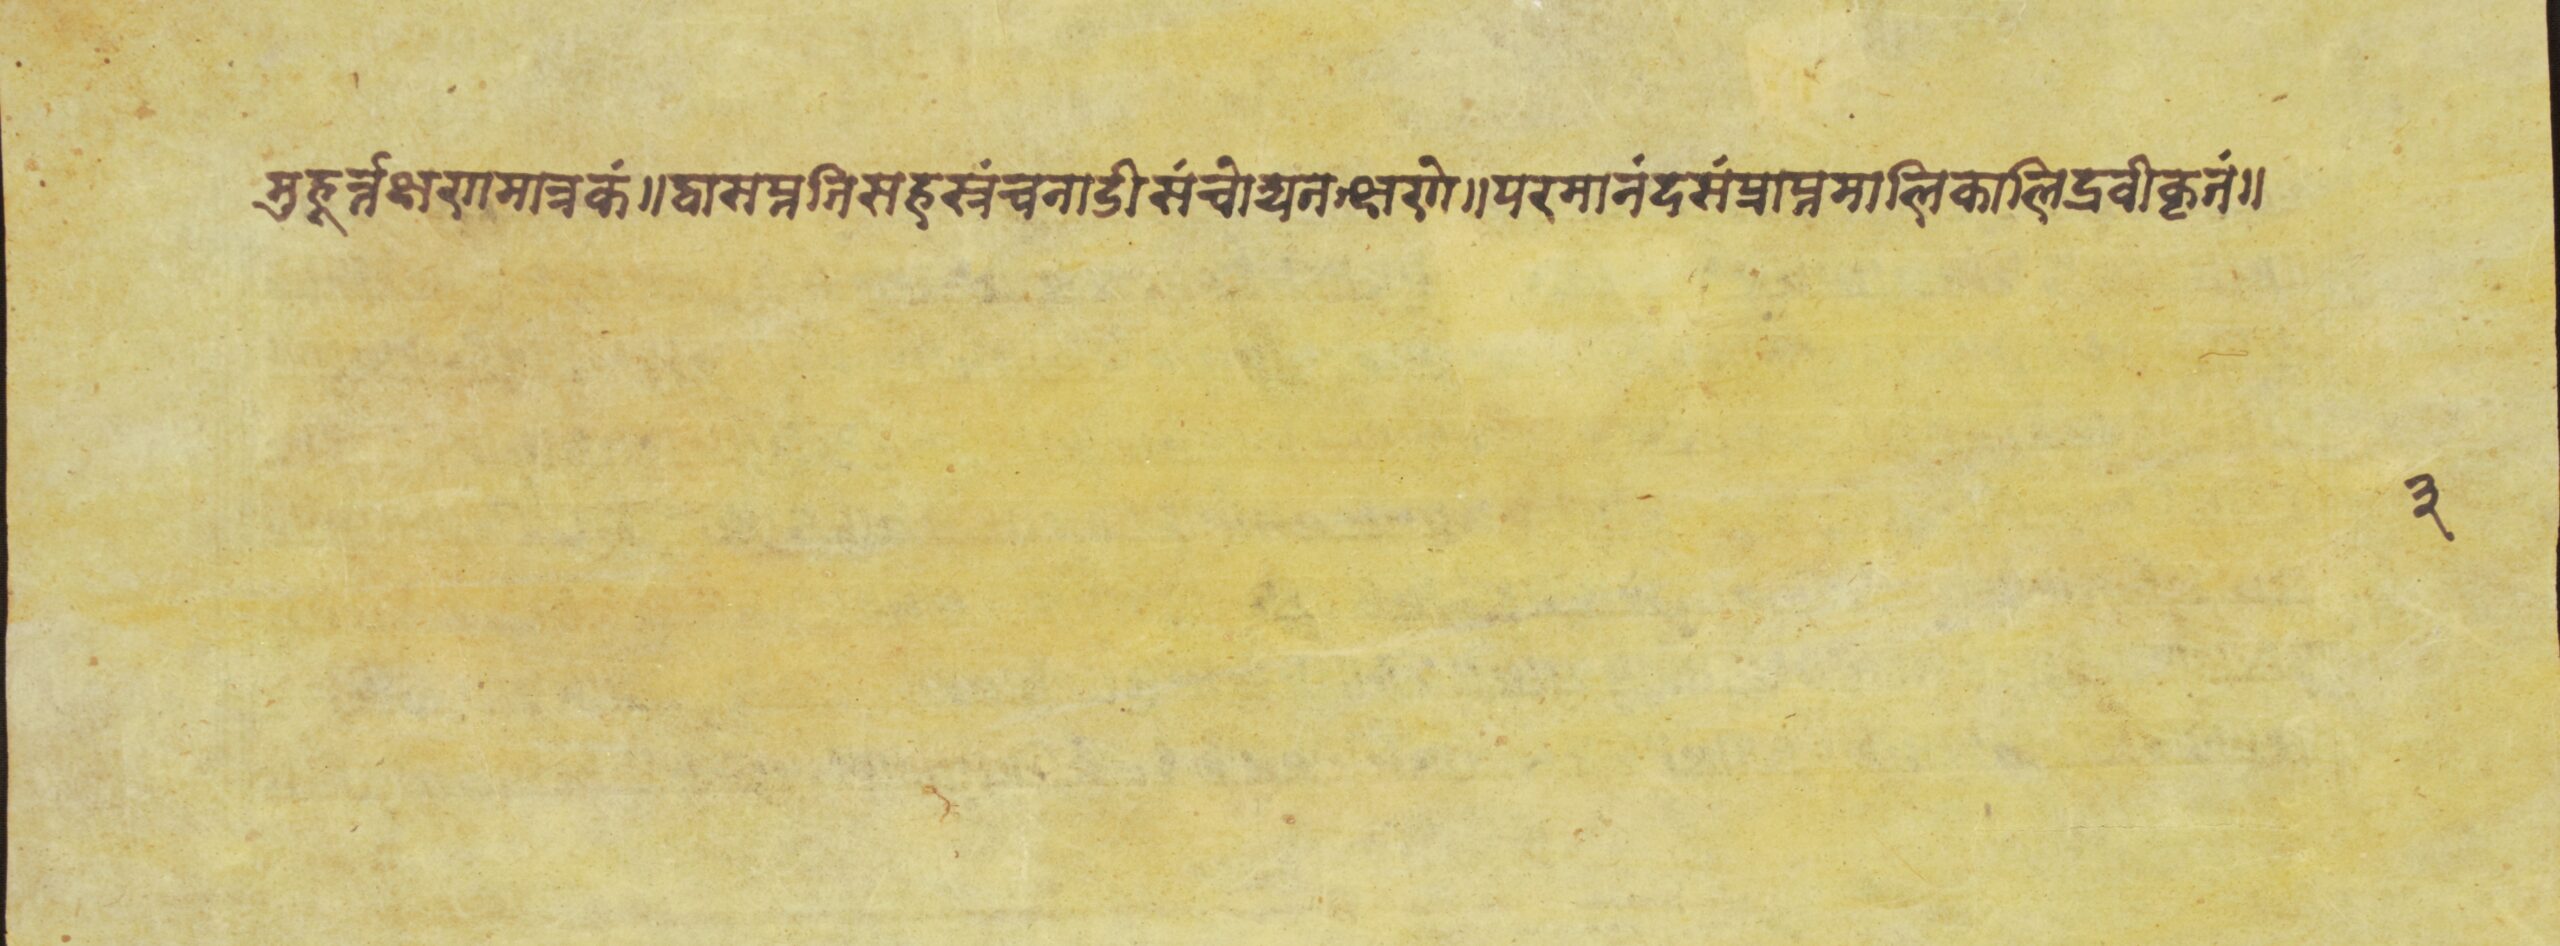 मुहूर्त्तक्षणमात्रकं॥द्वासप्ततिसहस्रंचनाडीसंचोद्यतत्क्षणे॥परमानंदसंप्राप्तमालिकालिद्रवीकृतं॥
३